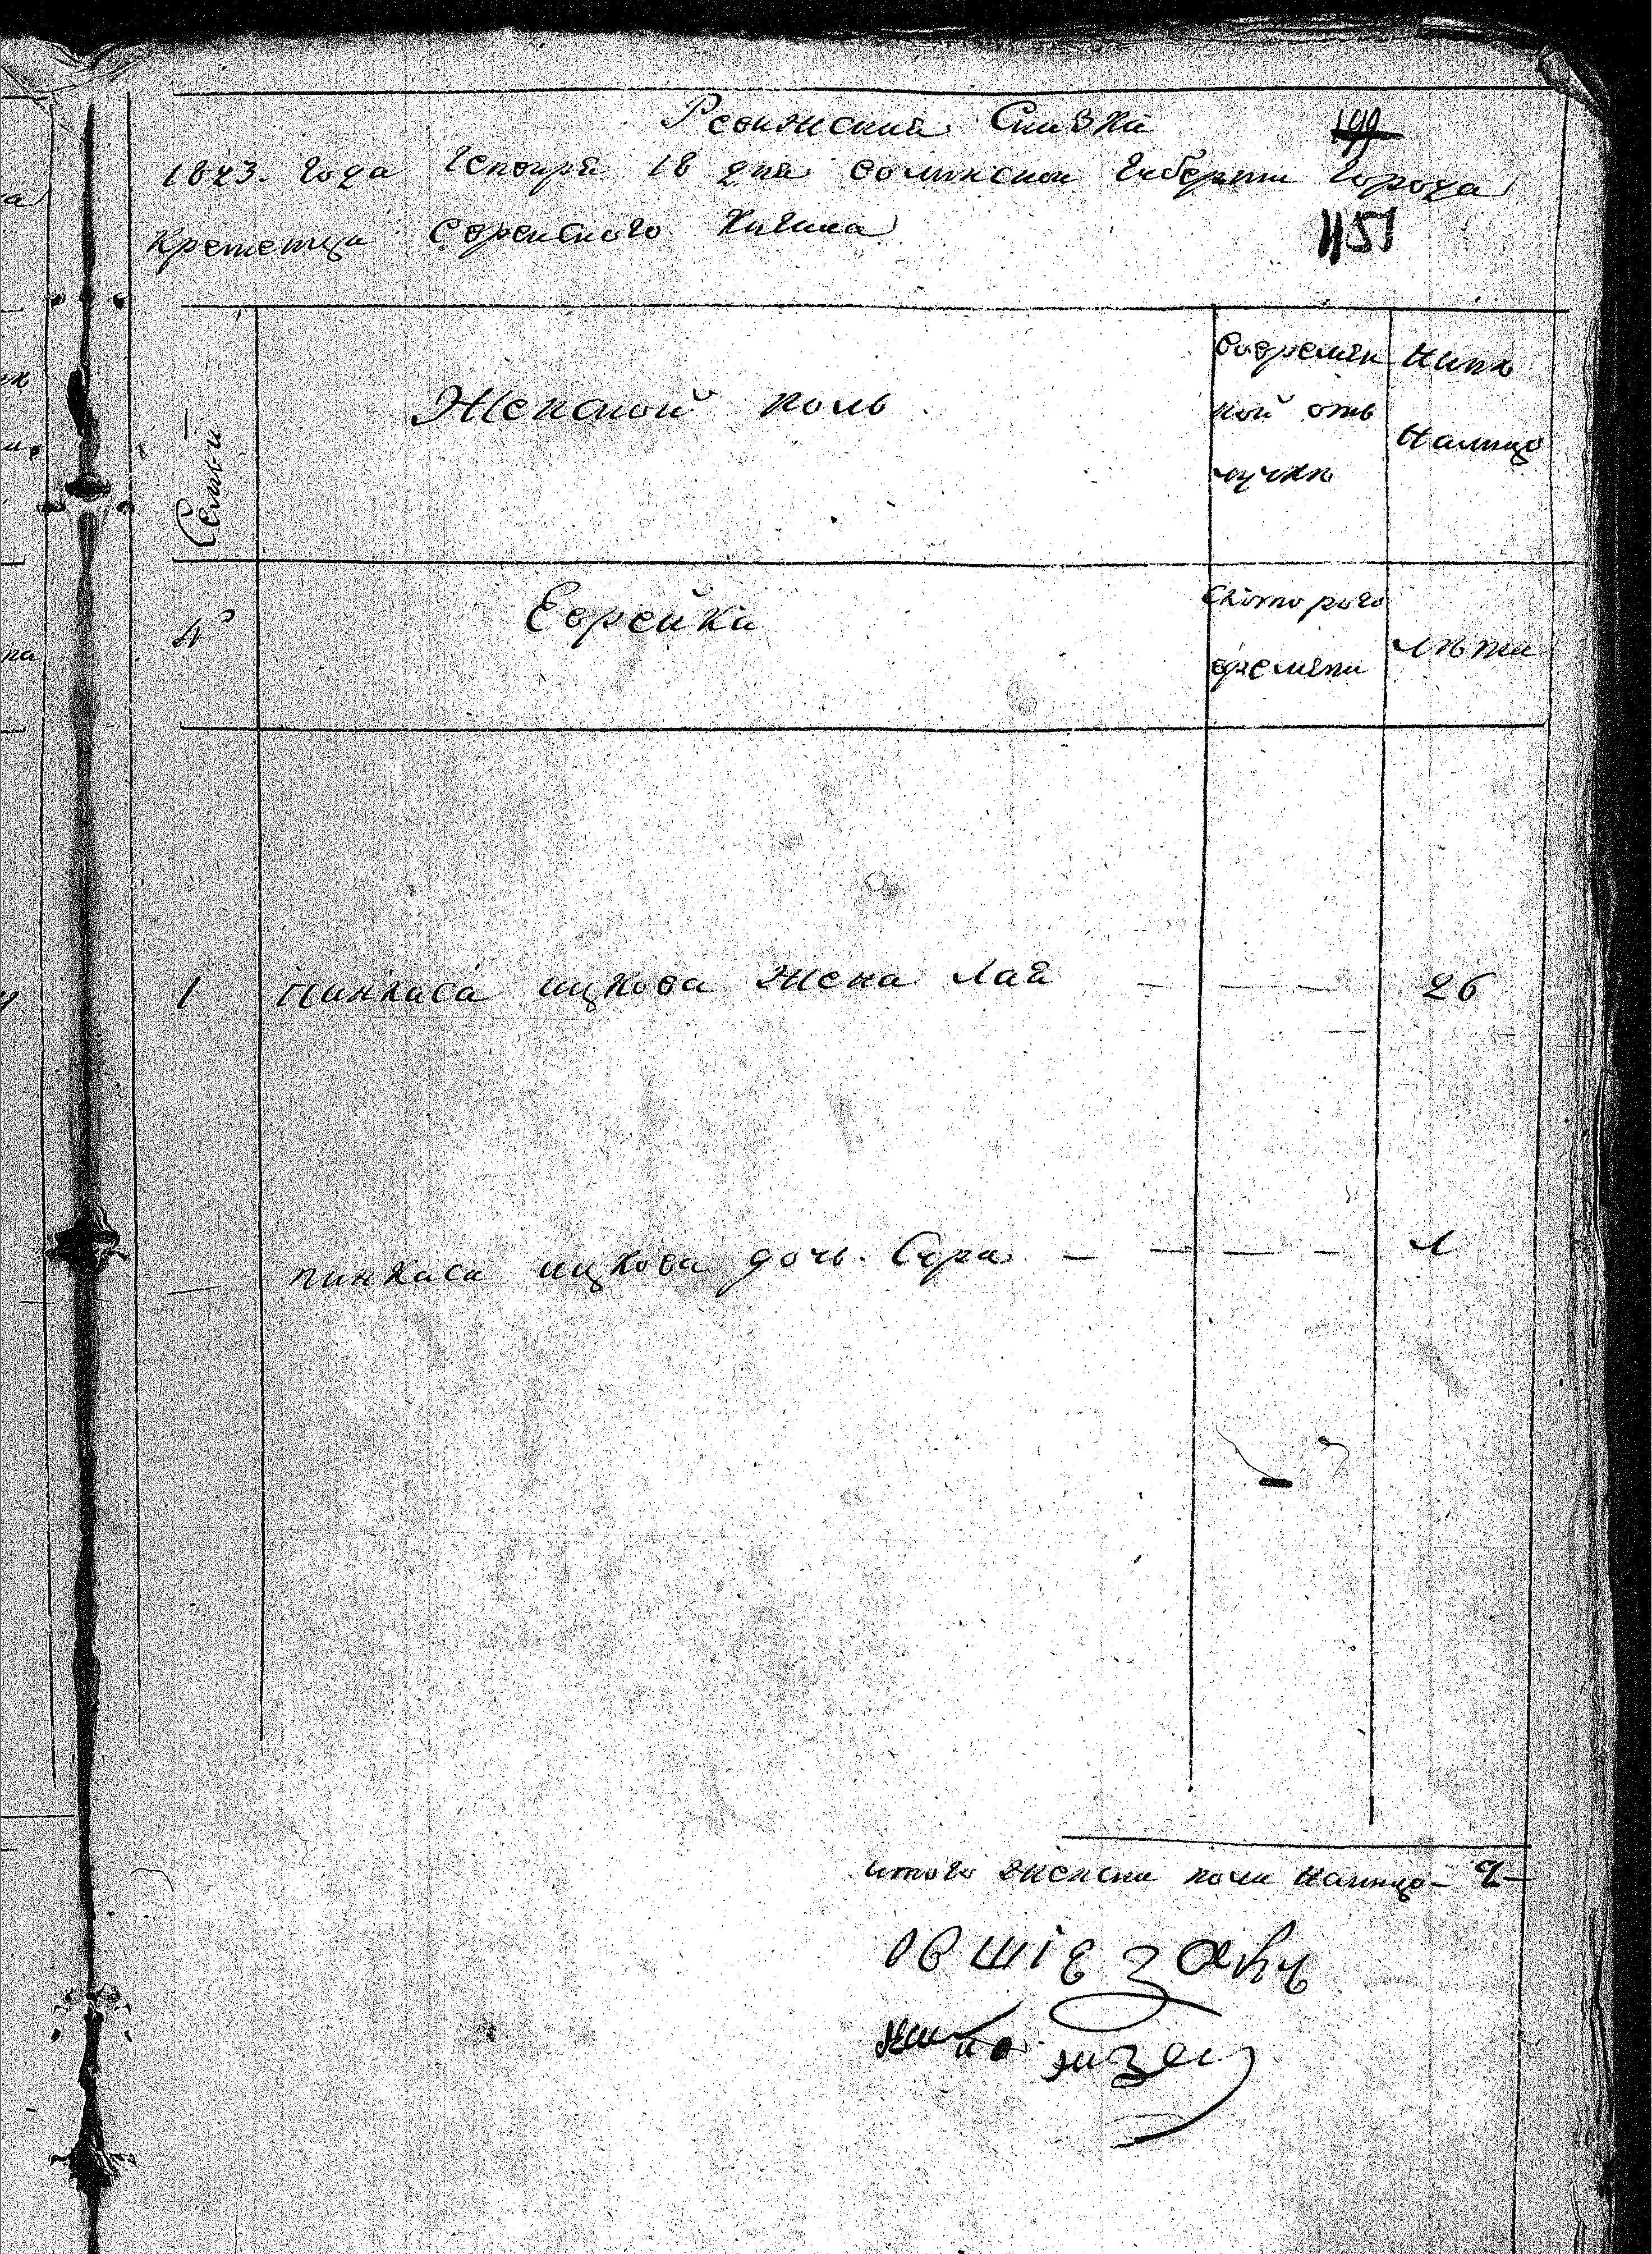 Ревижская Сказка
1823. Года Генваря 18 дня Волинской Губернии Города
Кременца Еврейского Кагала
1151
Семьй
Женской полъ
Во времян
ной отъ
лучкѣ
Нынѣ
Налицо
№
Еврейка
Скоторого
времяни
лѣта
1 Пинкаса ицкова Жена Лая — — — 26
— пинкаса ицкова дочь. Сура — — — — 1
итого Женска пола Налицо — 2 —